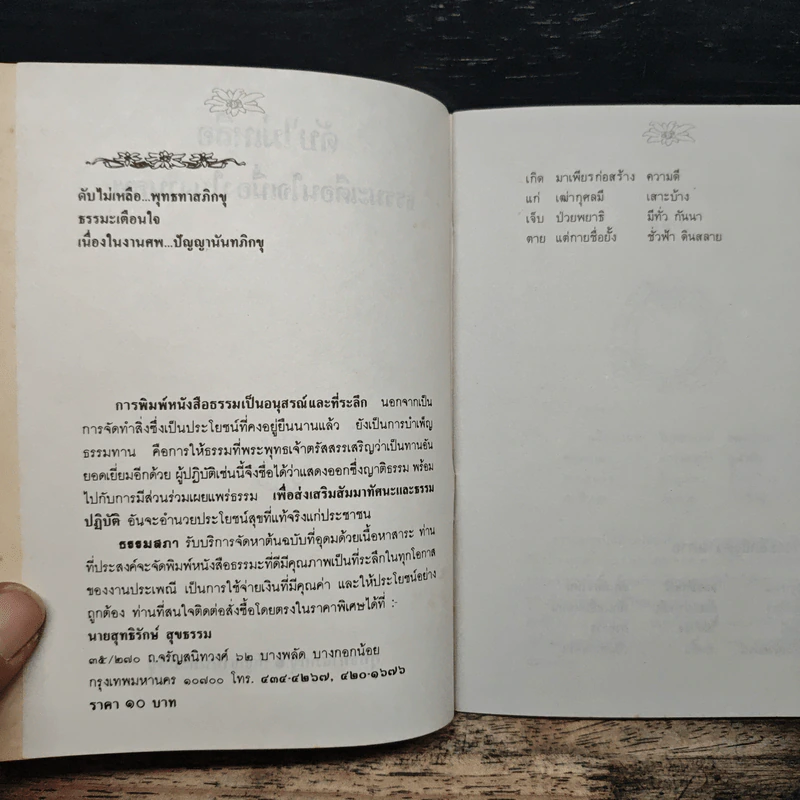 ดับไม่เหลือ...พุทธทาสภิกขุ
ธรรมะเตือนใจ
เนื่องในงานศพ...ปัญญานันทภิกขุ
การพิมพ์หนังสือธรรมเป็นอนุสรณ์และที่ระลึก นอกจากเป็น
การจัดทำสิ่งซึ่งเป็นประโยชน์ที่คงอยู่ยืนนานแล้ว ยังเป็นการบำเพ็ญ
ธรรมทาน คือการให้ธรรมที่พระพุทธเจ้าตรัสสรรเสริญว่าเป็นทานอัน
ยอดเยี่ยมอีกด้วย ผู้ปฏิบัติเช่นนี้จึงชื่อได้ว่าแสดงออกซึ่งญาติธรรม พร้อม
ไปกับการมีส่วนร่วมเผยแพร่ธรรม เพื่อส่งเสริมสัมมาทัศนะและธรรม
ปฏิบัติ อันจะอำนวยประโยชน์สุขที่แท้จริงแก่ประชาชน
ธรรมสภา รับบริการจัดหาต้นฉบับที่อุดมด้วยเนื้อหาสาระ ท่าน
ที่ประสงค์จะจัดพิมพ์หนังสือธรรมะที่ดีมีคุณภาพเป็นที่ระลึกในทุกโอกาส
ของงานประเพณี เป็นการใช้จ่ายเงินที่มีคุณค่า และให้ประโยชน์อย่าง
ถูกต้อง ท่านที่สนใจติดต่อสั่งซื้อโดยตรงในราคาพิเศษได้ที่ :-
นายสุทธิรักษ์ สุขธรรม
๓๕/๒๗๐ ถ.จรัญสนิทวงศ์ ๖๒ บางพลัด บางกอกน้อย
กรุงเทพมหานคร ๑๐๗๐๐ โทร. ๔๓๔-๔๒๖๗, ๔๒๐-๑๖๗๖
ราคา ๑๐ บาท
เกิด มาเพียรก่อสร้าง ความดี
แก่ เฒ่ากุศลมี เสาะบ้าง
เจ็บ ป่วยพยาธิ มีทั่ว กันนา
ตาย แต่กายชื่อยั้ง ชั่วฟ้า ดินสลาย